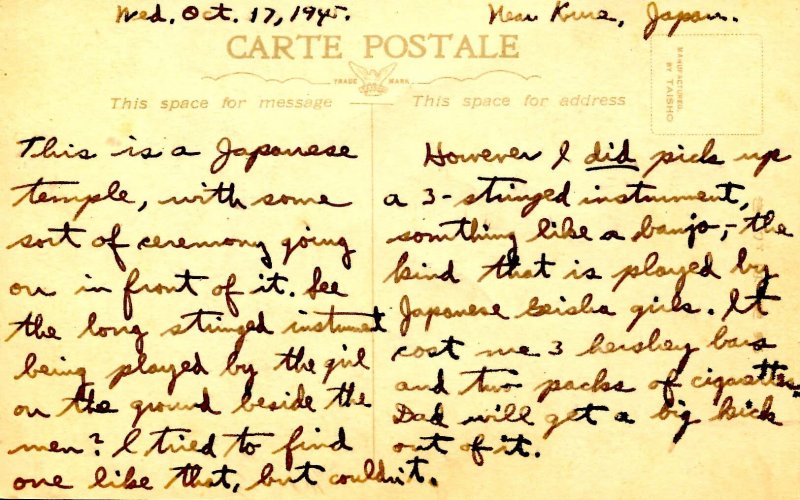 Wed. Oct. 17, 1945.
Near Kure, Japan.
CARTE POSTALE
TRADE MARK
This space for message
This space for address
MANUFACTURED.
BY TAISHO
This is a Japanese
temple, with some
sort of ceremony going
on in front of it. See
the long stringed instrument
being played by the girl
on the ground beside the
men? I tried to find
one like that, but couldn't.
However I did pick up
a 3-stringed instrument,
something like a banjo,- the
kind that is played by
Japanese Geisha girls. It
cost me 3 hershey bars
and two packs of cigarettes.
Dad will get a big kick
out of it.